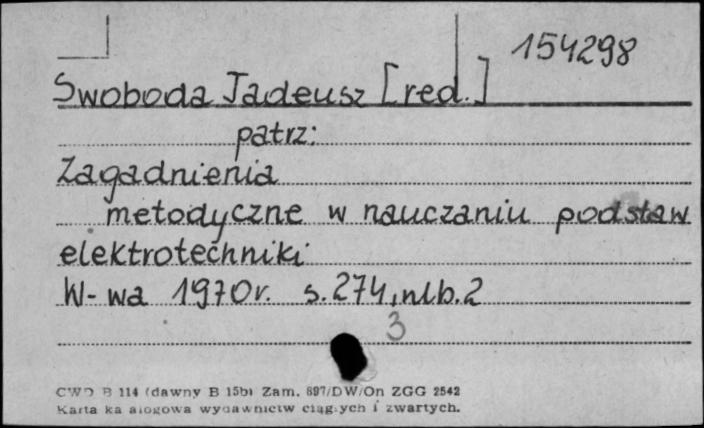 154298
Swoboda Jadeusz [red.]
patrz:
Zagadnienia
metodyczne w nauczaniu podstaw
elektrotechniki
W-wa 1970r. s.274, nlb.2
3
CWD B 114 (dawny B 15b) Zam. 697/DW/On ZGG 2542
Karta ka alogowa wydawnictw ciągłych i zwartych.